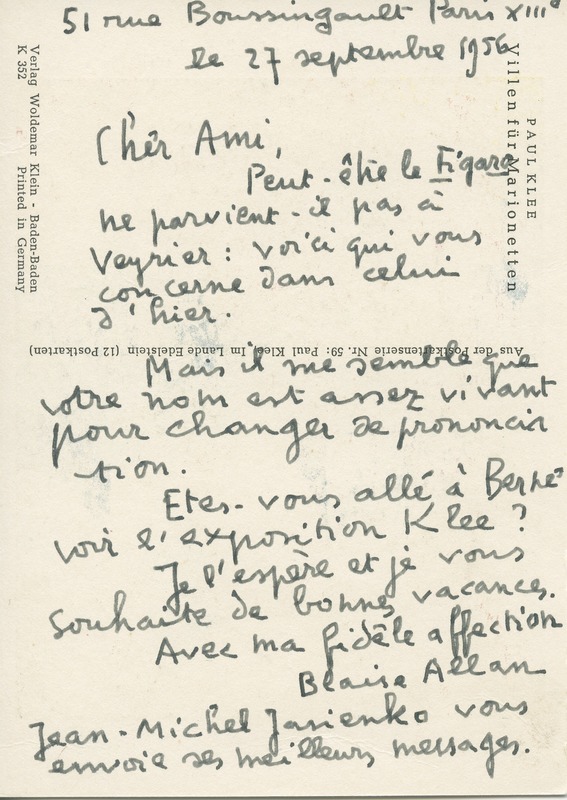 51 rue Boussingault Paris XIIIe
le 27 septembre 1956
Cher Ami,
Peut-être le Figaro
ne parvient-il pas à
Veyrier : voici qui vous
concerne dans celui
d'hier.
Mais il me semble que
votre nom est assez vivant
pour changer de prononcia
tion.
Etes-vous allé à Berne
voir l'exposition Klee ?
Je l'espère et je vous
souhaite de bonnes vacances.
Avec ma fidèle affection
Blaise Allan
Jean-Michel Jasienko vous
envoie ses meilleurs messages.
PAUL KLEE
Villen für Marionetten
Verlag Woldemar Klein - Baden-Baden
K 352 Printed in Germany
Aus der Postkartenserie Nr. 59: Paul Klee, Im Lande Edelstein (12 Postkarten)